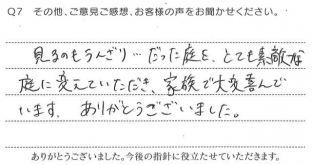 Q7 その他、ご意見ご感想、お客様の声をお聞かせください。
見るのもうんざり…だった庭を、とても素敵な
庭に変えていただき、家族で大変喜んで
います。ありがとうございました。
ありがとうございました。今後の指針に役立たせていただきます。